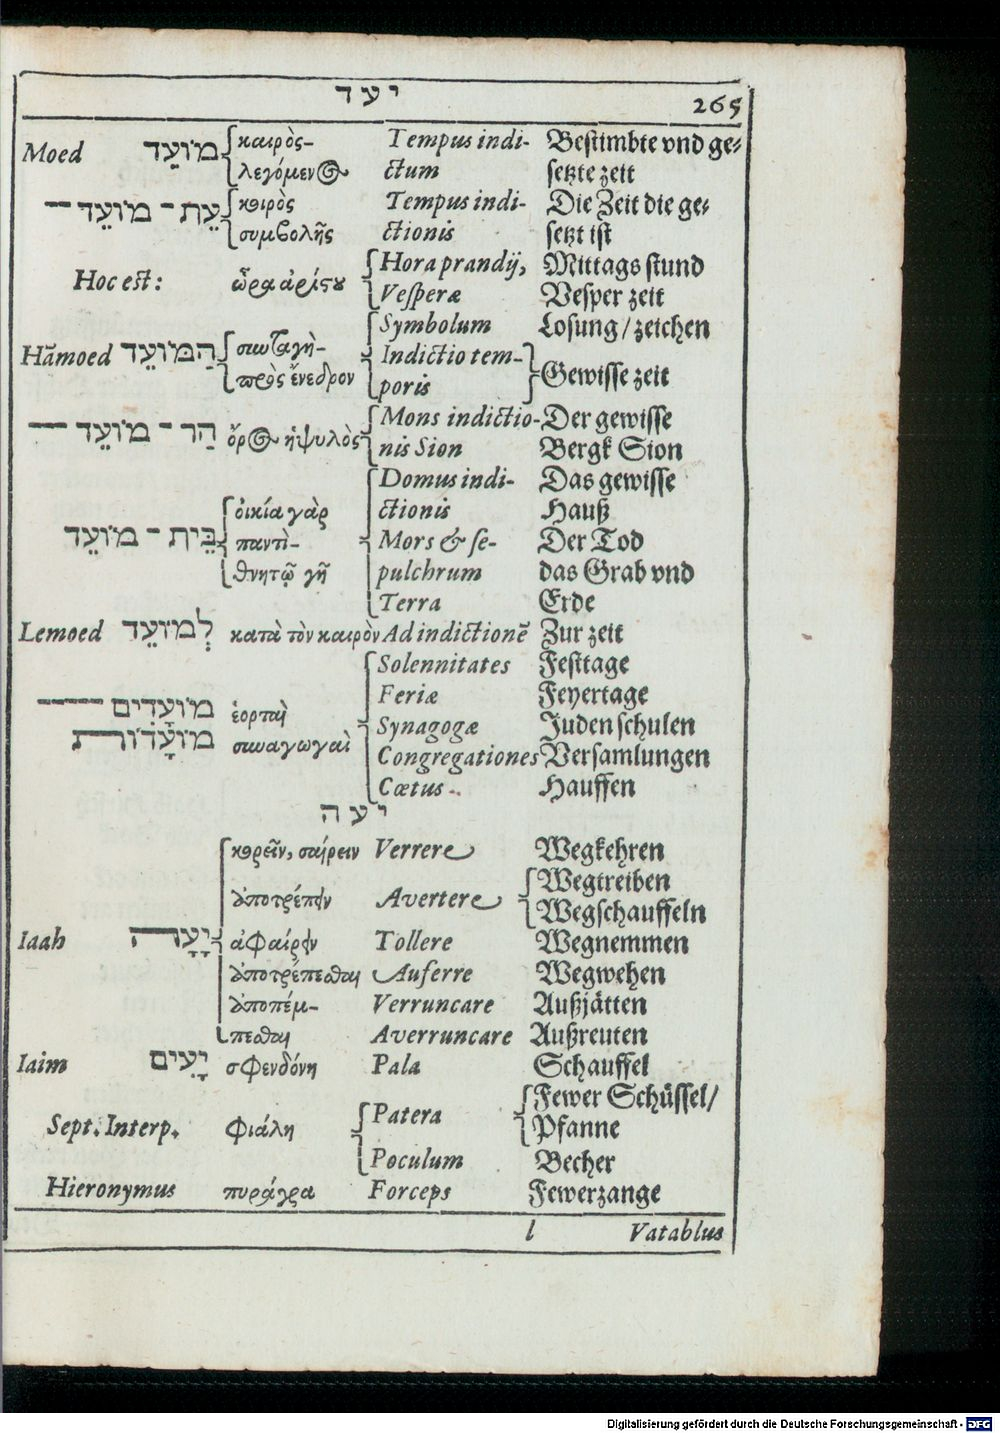 יעד 265
Moed מוֹעֵד καιρὸς- Tempus indi- Bestimbte vnd ge-
λεγόμενος ctum setzte zeit
עֵת - מוֹעֵד καιρὸς Tempus indi- Die Zeit die ge-
συμβολῆς ctionis setzt ist
Hoc est: ὥρα ἀρίστου Hora prandij, Mittags stund
Vesperæ Vesper zeit
Symbolum Losung/zeichen
Hãmoed הַמּוֹעֵד συνταγὴ- Indictio tem-
πρὸς ἔνεδρον poris Gewisse zeit
הַר - מוֹעֵד ὄρος ὑψυλὸς Mons indictio- Der gewisse
nis Sion Bergk Sion
Domus indi- Das gewisse
οἰκία γὰρ ctionis Hauß
בֵּית - מוֹעֵד παντὶ- Mors & se- Der Tod
θνητῷ γῆ pulchrum das Grab vnd
Terra Erde
Lemoed לְמוֹעֵד κατὰ τὸν καιρὸν Ad indictionẽ Zur zeit
Solennitates Festtage
מוֹעָדִים ἑορταὶ Feriæ Feyertage
מוֹעָדוֹת συναγωγαὶ Synagogæ Juden schulen
Congregationes Versamlungen
Cœtus Hauffen
יעה
καρεῖν, σαίρειν Verrere Wegkehren
ἀποτρέπειν Avertere Wegtreiben
Wegschauffeln
Iaah יָעָה ἀφαίρειν Tollere Wegnemmen
ἀποτρέπεσθαι Auferre Wegwehen
ἀποπέμ- Verruncare Außjätten
πεσθαι Averruncare Außreuten
Iaim יָעִים σφενδόνη Pala Schauffel
Sept. Interp. φιάλη Patera Fewer Schüssel/
Pfanne
Poculum Becher
Hieronymus πυράγρα Forceps Fewerzange
l Vatablus
Digitalisierung gefördert durch die Deutsche Forschungsgemeinschaft - DFG